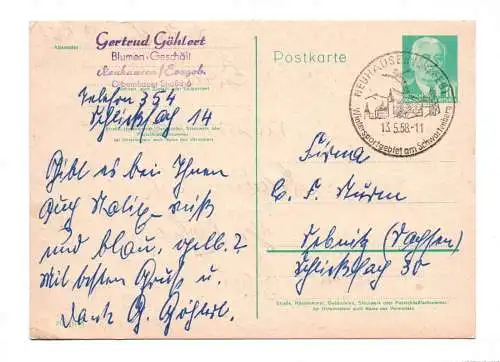 Absender:
Gertrud Göhlert
Blumen-Geschäft
Neuhausen/Erzgeb.
Telefon 354
Schließfach 14
Straße, Hausnummer, Gebäudeteil, Stockwerk oder Postschließfachnummer;
bei Untermietern auch Name des Vermieters
Gibt es bei Ihnen
auch
und blau, gelb?
Mit besten Gruß u.
Dank G. Göhlert.
Postkarte
NEUHAUSEN
13.5.58-11
Wintersportgebiet am Schwartenberg
Firma
C. F. Sturm
Sebnitz (Sachsen)
Schließfach 30
Straße, Hausnummer, Gebäudeteil, Stockwerk oder Postschließfachnummer;
bei Untermietern auch Name des Vermieters